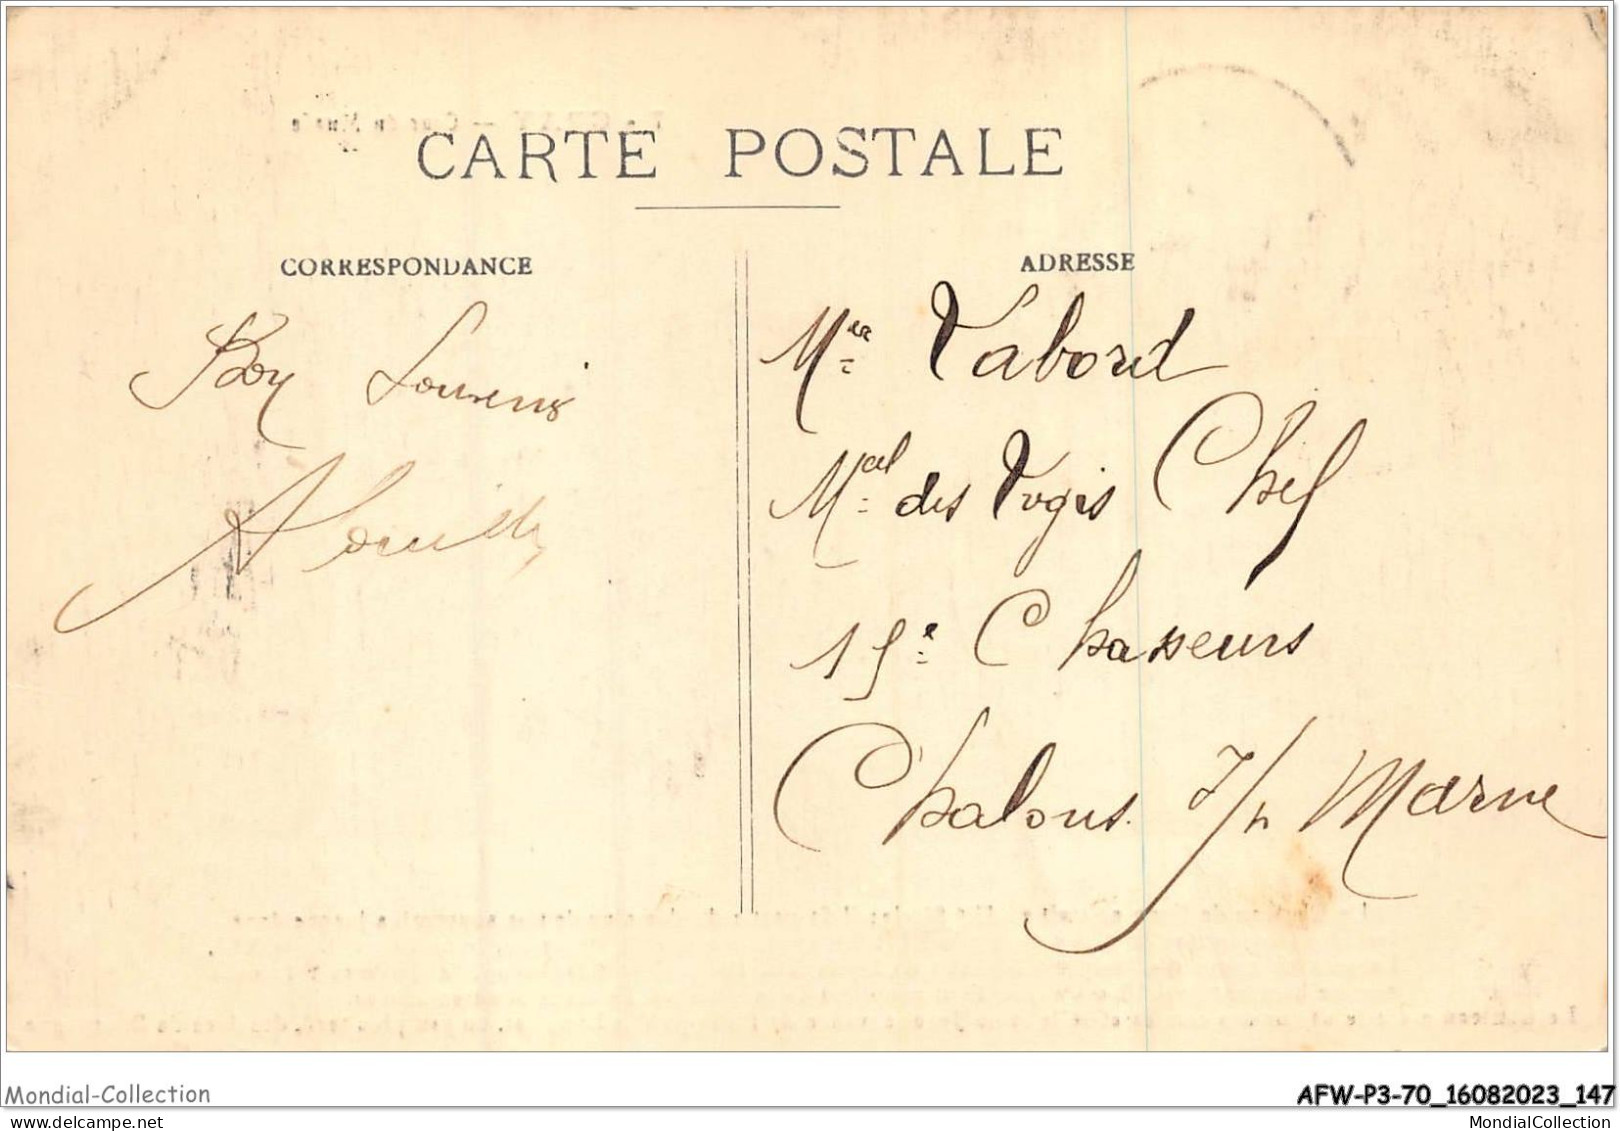 CARTE POSTALE
CORRESPONDANCE
ADRESSE
Bon Souvenir
Mr Tabord
Mal des Logis Chef
15e Chasseurs
Chalons s/ Marne
Mondial-Collection
AFW-P3-70_16082023_147
www.delcampe.net
MondialCollection